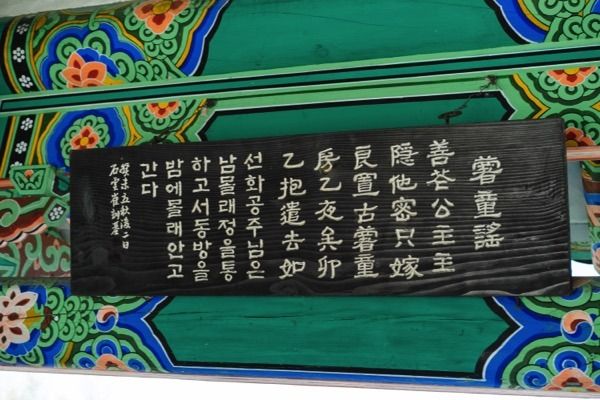 薯童謠
善花公主主
隱他密只嫁
良置古薯童
房乙夜矣卯
乙抱遣去如
선화공주님은
남몰래정을통
하고서동방을
밤에몰래안고
간다
癸未立秋後二日
石雲崔